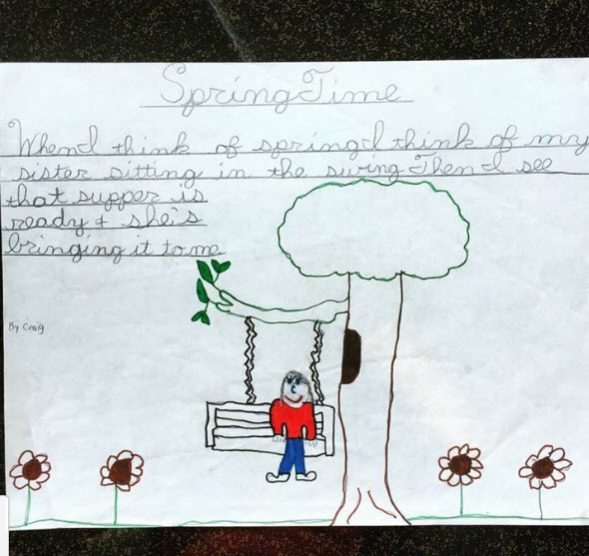 Spring Time
When I think of spring I think of my
sister sitting in the swing Then I see
that supper is
ready + she's
bringing it to me
By Craig